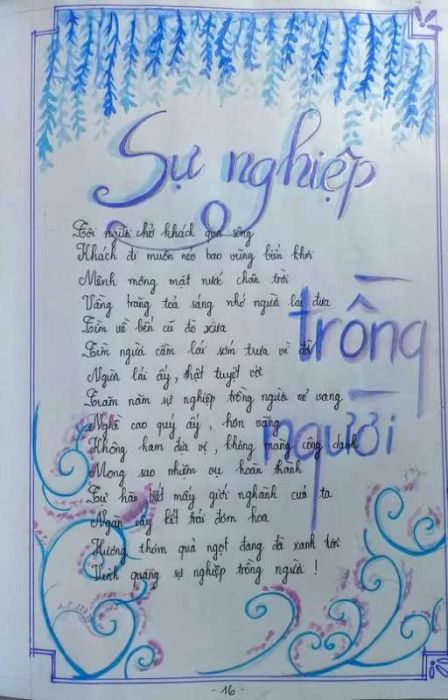 Sự nghiệp
trồng
người
Đời người chở khách qua sông
Khách đi muôn nẻo bao vùng biển khơi
Mênh mông mặt nước chân trời
Vầng trăng toả sáng nhớ người lái đưa
Tìm về bến cũ đò xưa
Tìm người cầm lái sớm trưa về đâu
Người lái ấy, thật tuyệt vời
Trăm năm sự nghiệp trồng người vẻ vang
Nghề cao quý ấy, hơn vàng
Không ham địa vị, không màng công danh
Mong sao nhiệm vụ hoàn thành
Tự hào biết mấy giới nghành của ta
Ngàn cây kết trái đơm hoa
Hương thơm quả ngọt đang đà xanh tươi
Vinh quang sự nghiệp trồng người !
- 16 -